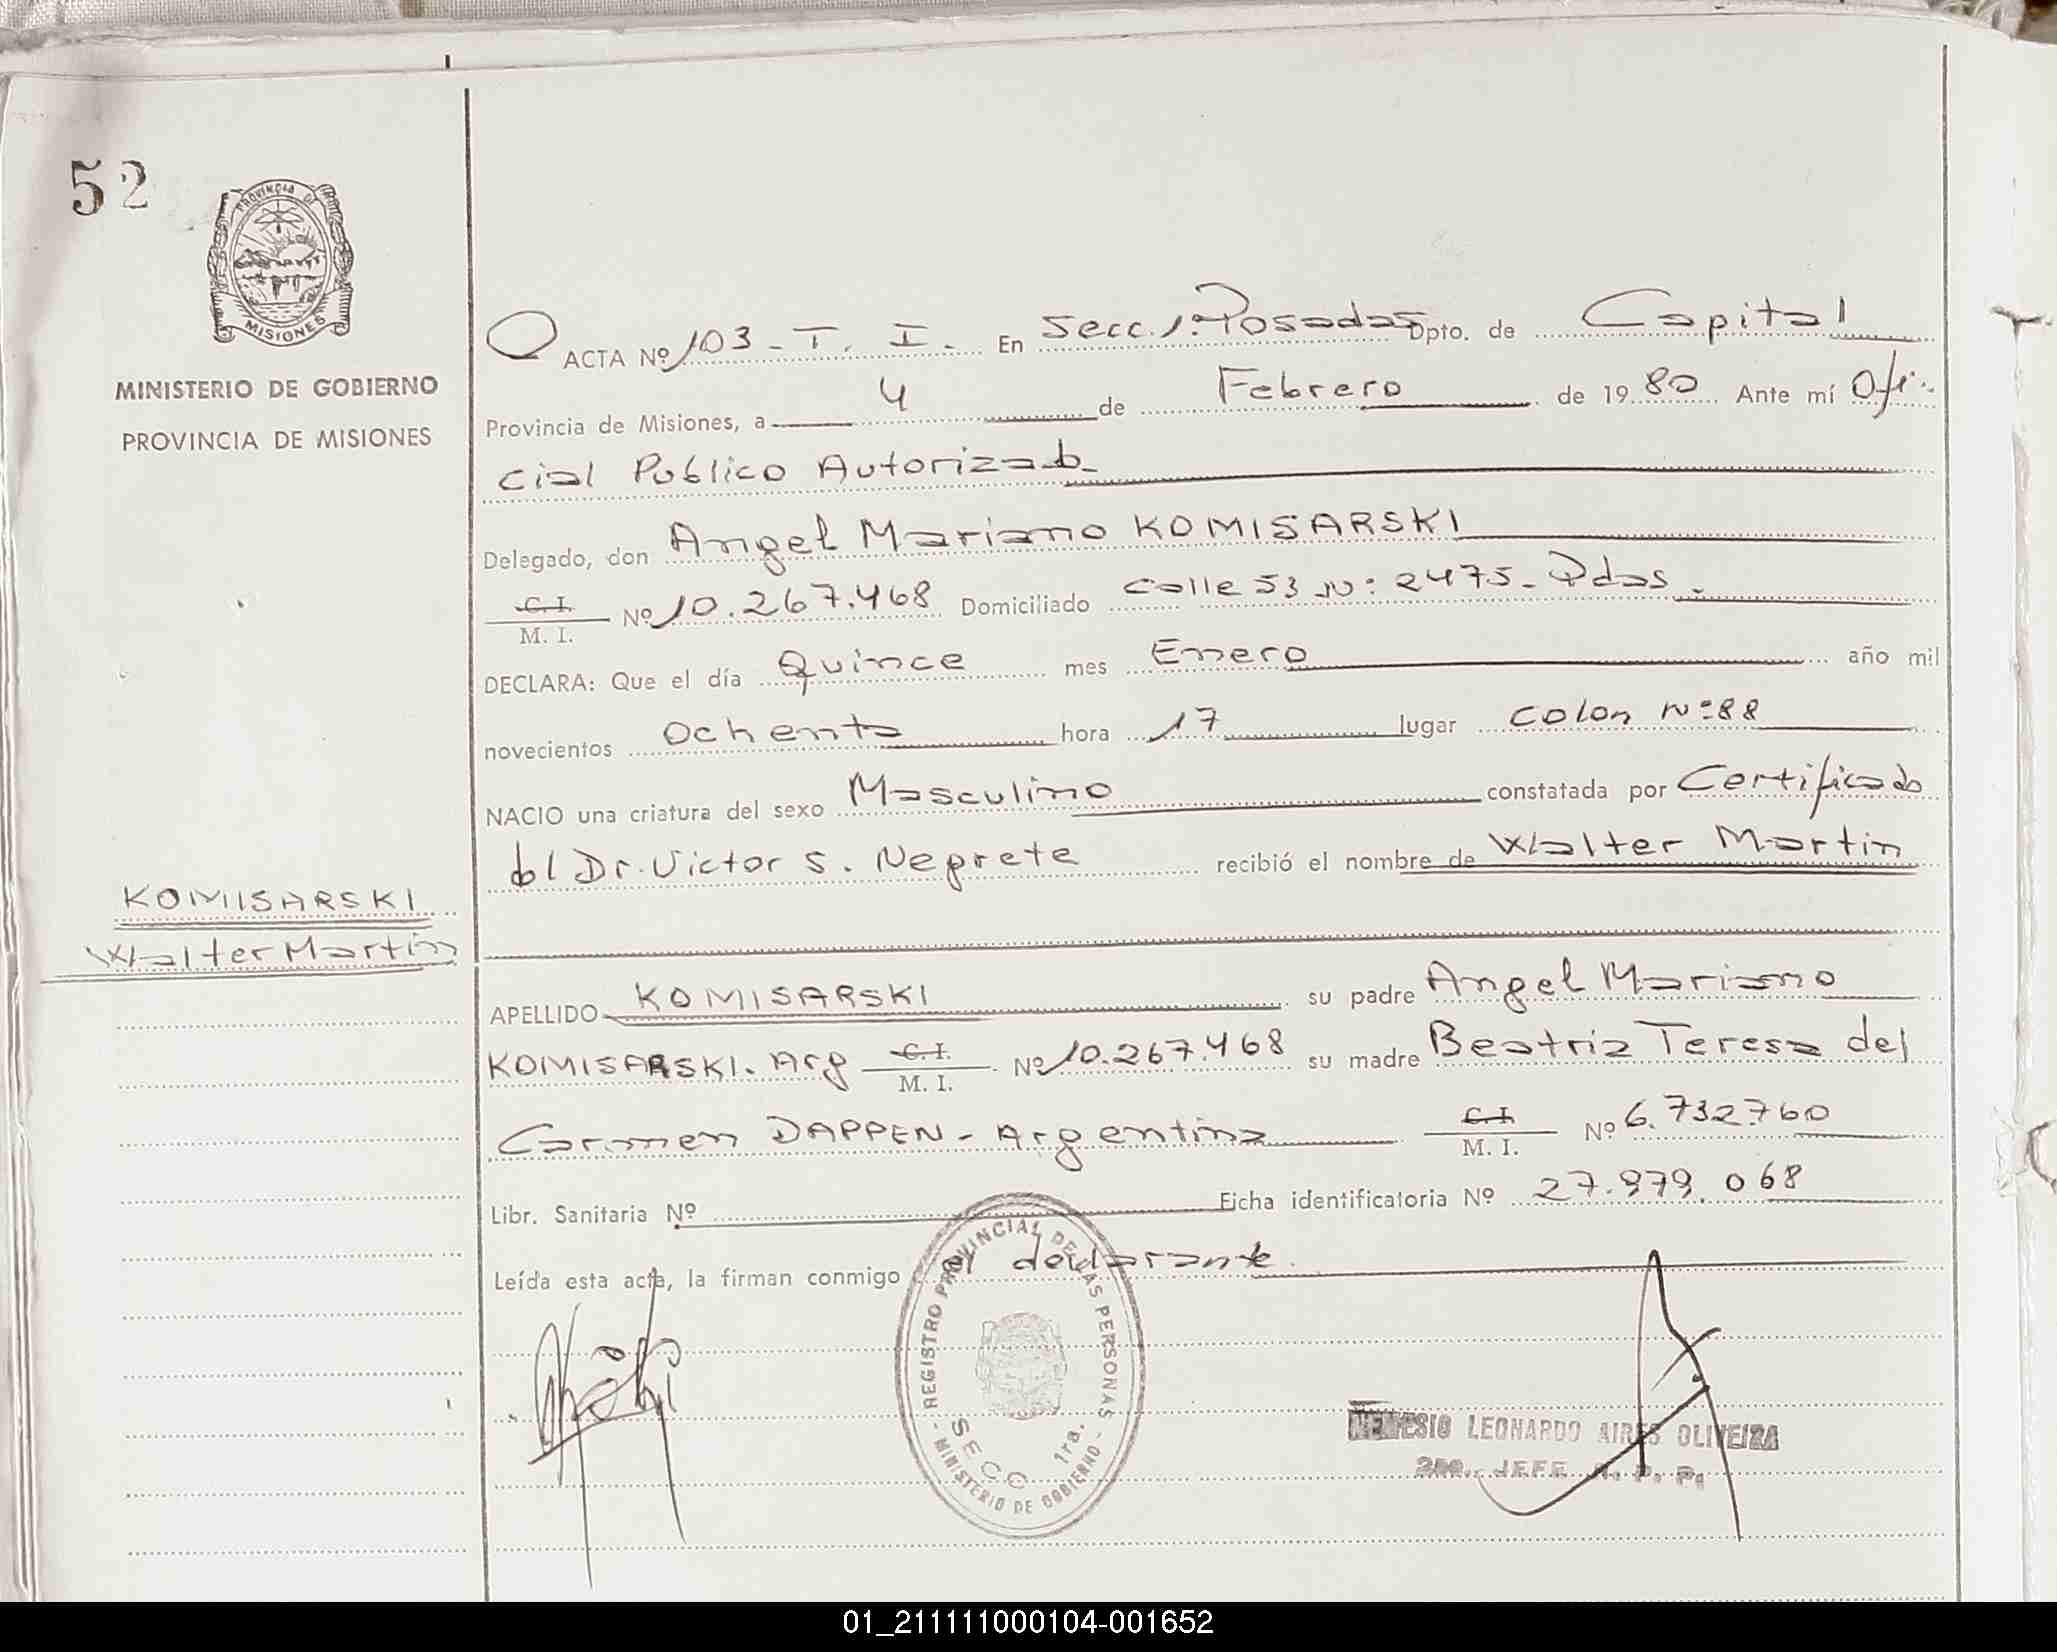 52
PROVINCIA DE
MISIONES
MINISTERIO DE GOBIERNO
PROVINCIA DE MISIONES
ACTA Nº 103 - T. I. En Secc. 1ª Posadas Dpto. de Capital
Provincia de Misiones, a 4 de Febrero de 1980 Ante mí Ofi-
cial Publico Autorizado
Delegado, don Angel Mariano KOMISARSKI
C.I. / M. I. Nº 10.267.468 Domiciliado calle 53 Nº: 2475- Pdas.
DECLARA: Que el día Quince mes Enero año mil
novecientos ochenta hora 17 lugar Colon Nº 88
NACIO una criatura del sexo Masculino constatada por Certificado
del Dr. Victor S. Negrete recibió el nombre de Walter Martin
KOMISARSKI
Walter Martin
APELLIDO KOMISARSKI su padre Angel Mariano
KOMISARSKI. Arg C.I. / M. I. Nº 10.267.468 su madre Beatriz Teresa del
Carmen DAPPEN - Argentina C.I. / M. I. Nº 6.732.760
Libr. Sanitaria Nº Ficha identificatoria Nº 27.979.068
Leída esta acta, la firman conmigo el declarante.
REGISTRO PROVINCIAL DE LAS PERSONAS
SECC 1ra.
- MINISTERIO DE GOBIERNO -
NEMESIO LEONARDO AIRES OLIVEIRA
2do. JEFE R. P. P.
01_211111000104-001652